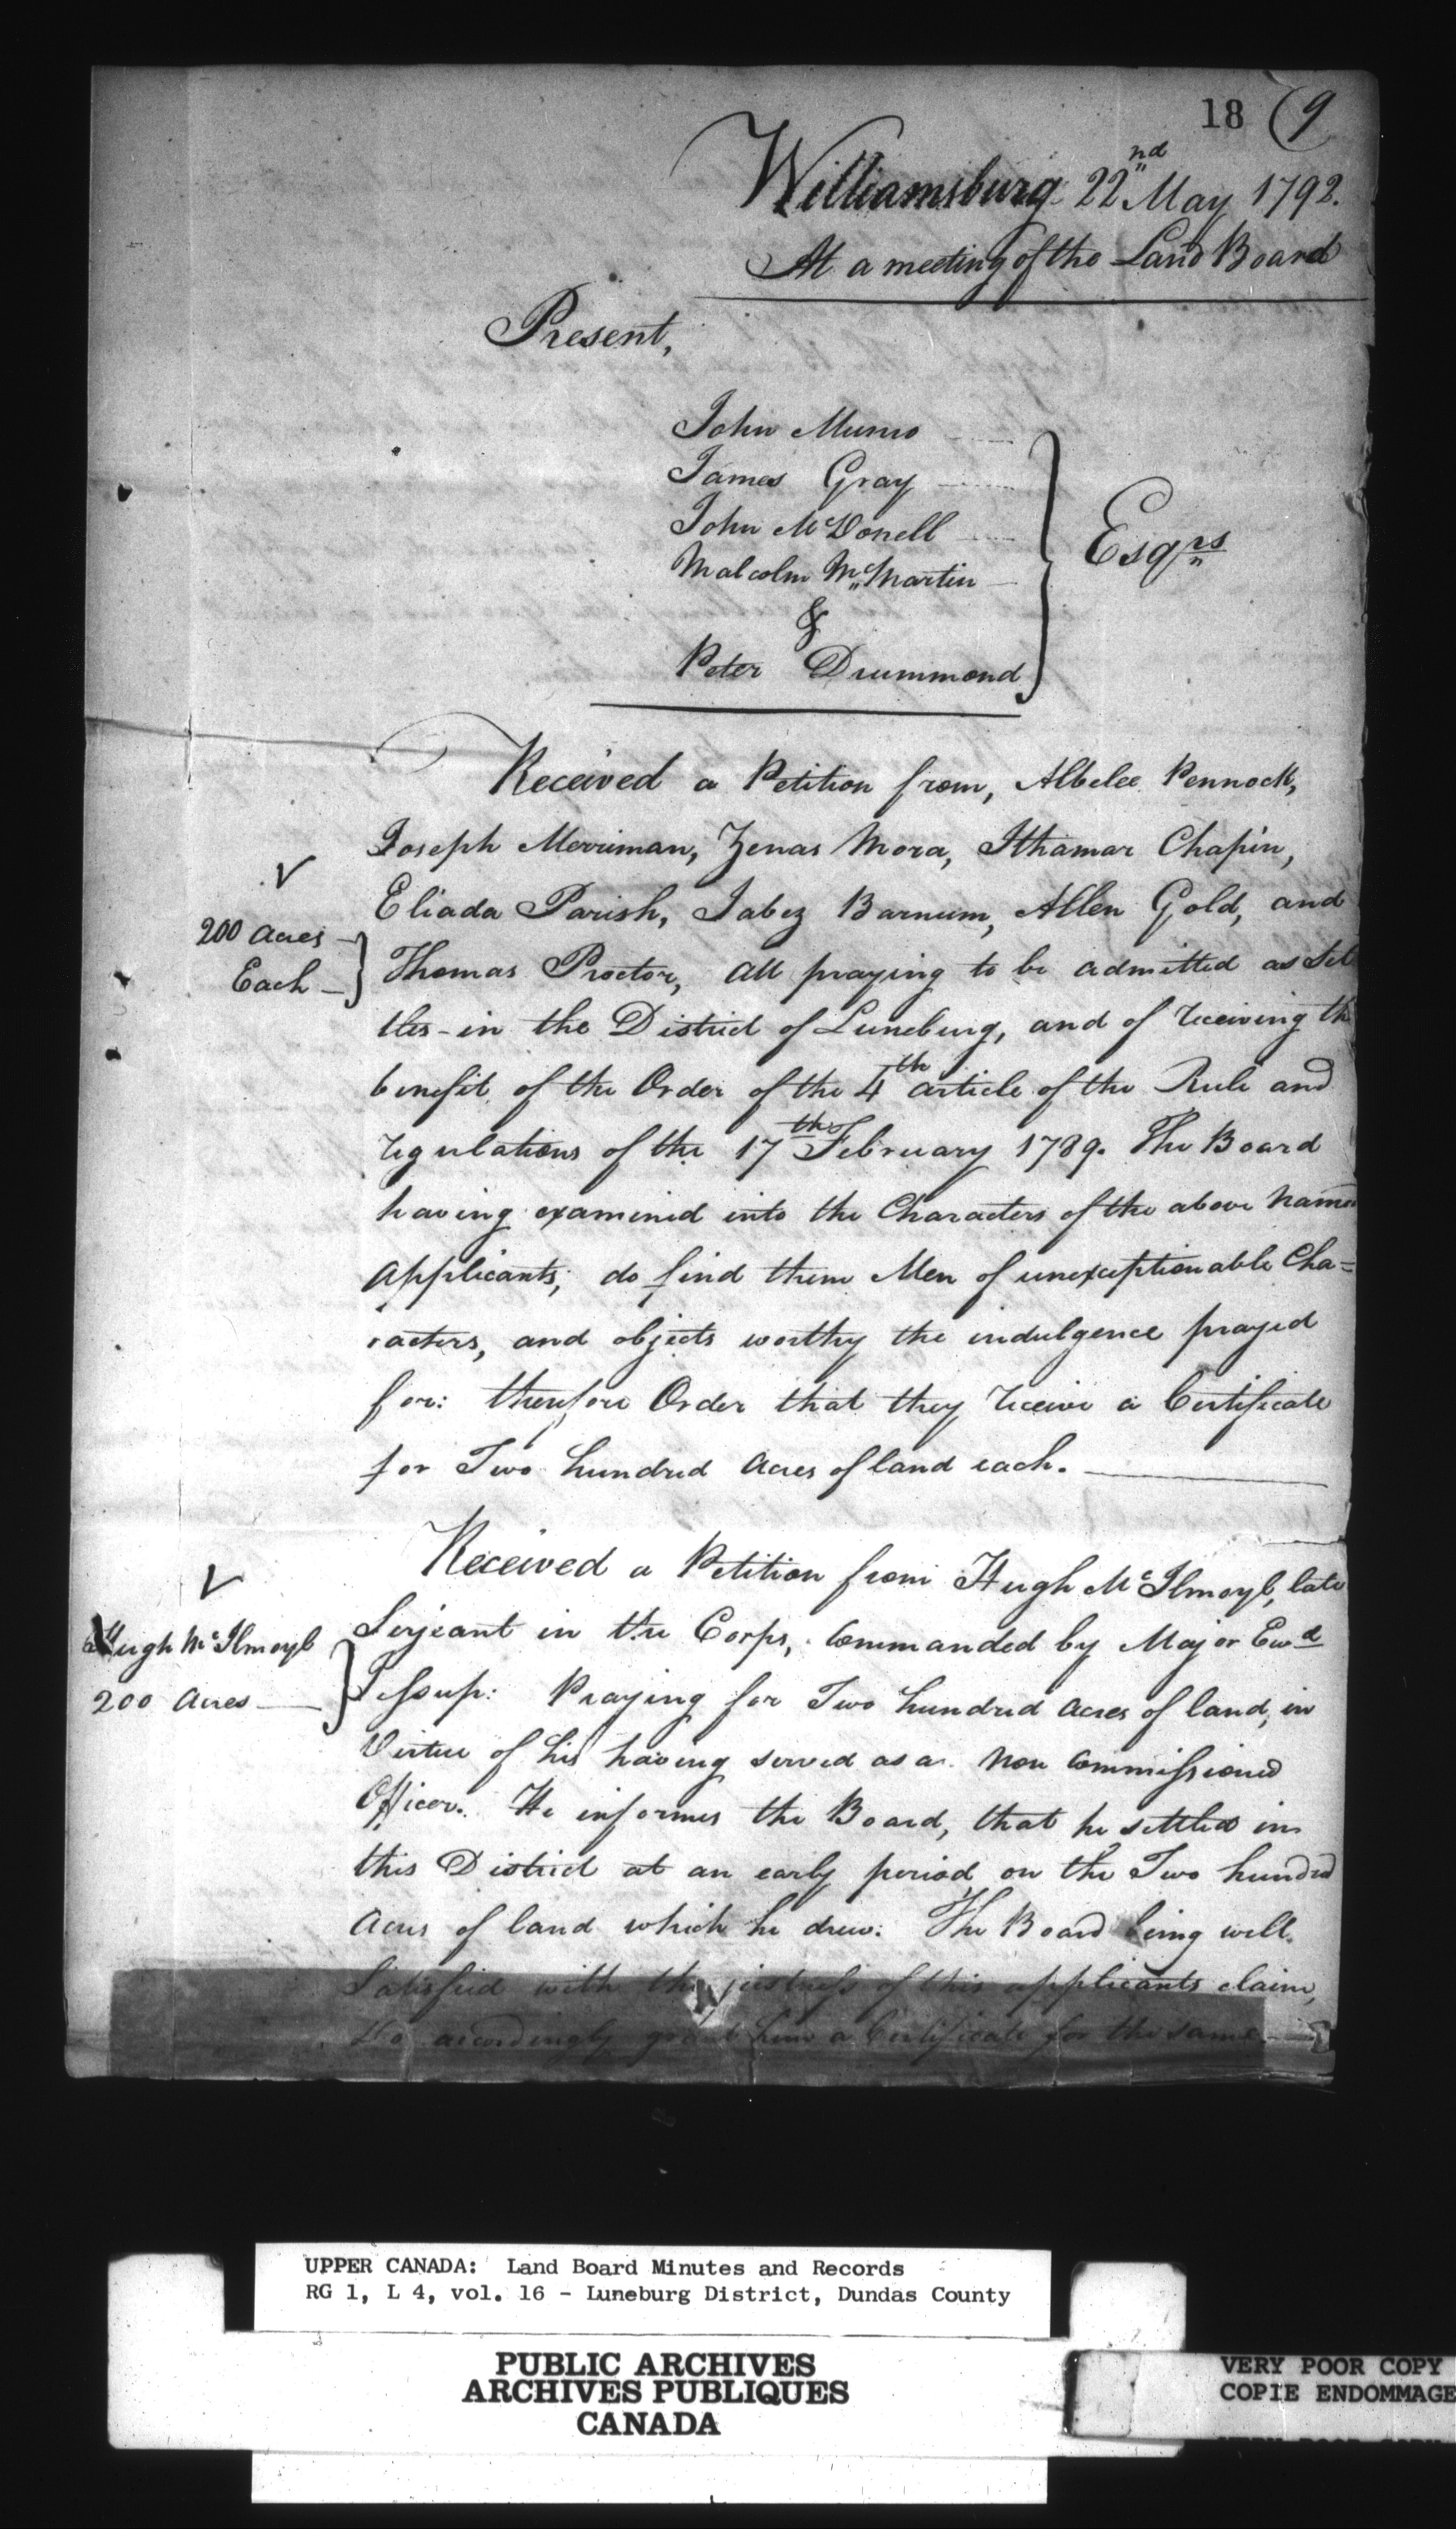 18 (9
Williamsburg 22nd May 1792.
At a meeting of the Land Board
Present,
John Munro
James Gray
John McDonell
Malcolm McMartin
&
Peter Drummond
Esqrs
Received a Petition from, Albelee Pennock,
Joseph Merriman, Zenas Mora, Ithamar Chapin,
Eliada Parish, Jabez Barnum, Allen Gold, and
200 Acres
Each
Thomas Proctor, All praying to be admitted as Set
tlers in the District of Luneburg, and of receiving the
benefit of the Order of the 4th article of the Rule and
regulations of the 17th February 1789. The Board
having examined into the Characters of the above Named
Applicants; do find them Men of unexceptionable Cha=
racters, and objects worthy the indulgence prayed
for: therefore Order that they receive a Certificate
for Two hundred Acres of land each.
Received a Petition from Hugh McIlmoyl, late
Hugh McIlmoyl
200 Acres
Serjeant in the Corps, Commanded by Major Ewd
Jessup: Praying for Two hundred Acres of land, in
Virtue of his having served as a Non Commissioned
Officer. He informes the Board, that he settled in
this District at an early period, on the Two hundred
Acres of land which he drew: The Board being well
Satisfied with the justness of this applicants claim,
Do accordingly grant him a Certificate for the same
UPPER CANADA: Land Board Minutes and Records
RG 1, L 4, vol. 16 - Luneburg District, Dundas County
PUBLIC ARCHIVES
ARCHIVES PUBLIQUES
CANADA
VERY POOR COPY
COPIE ENDOMMAGE